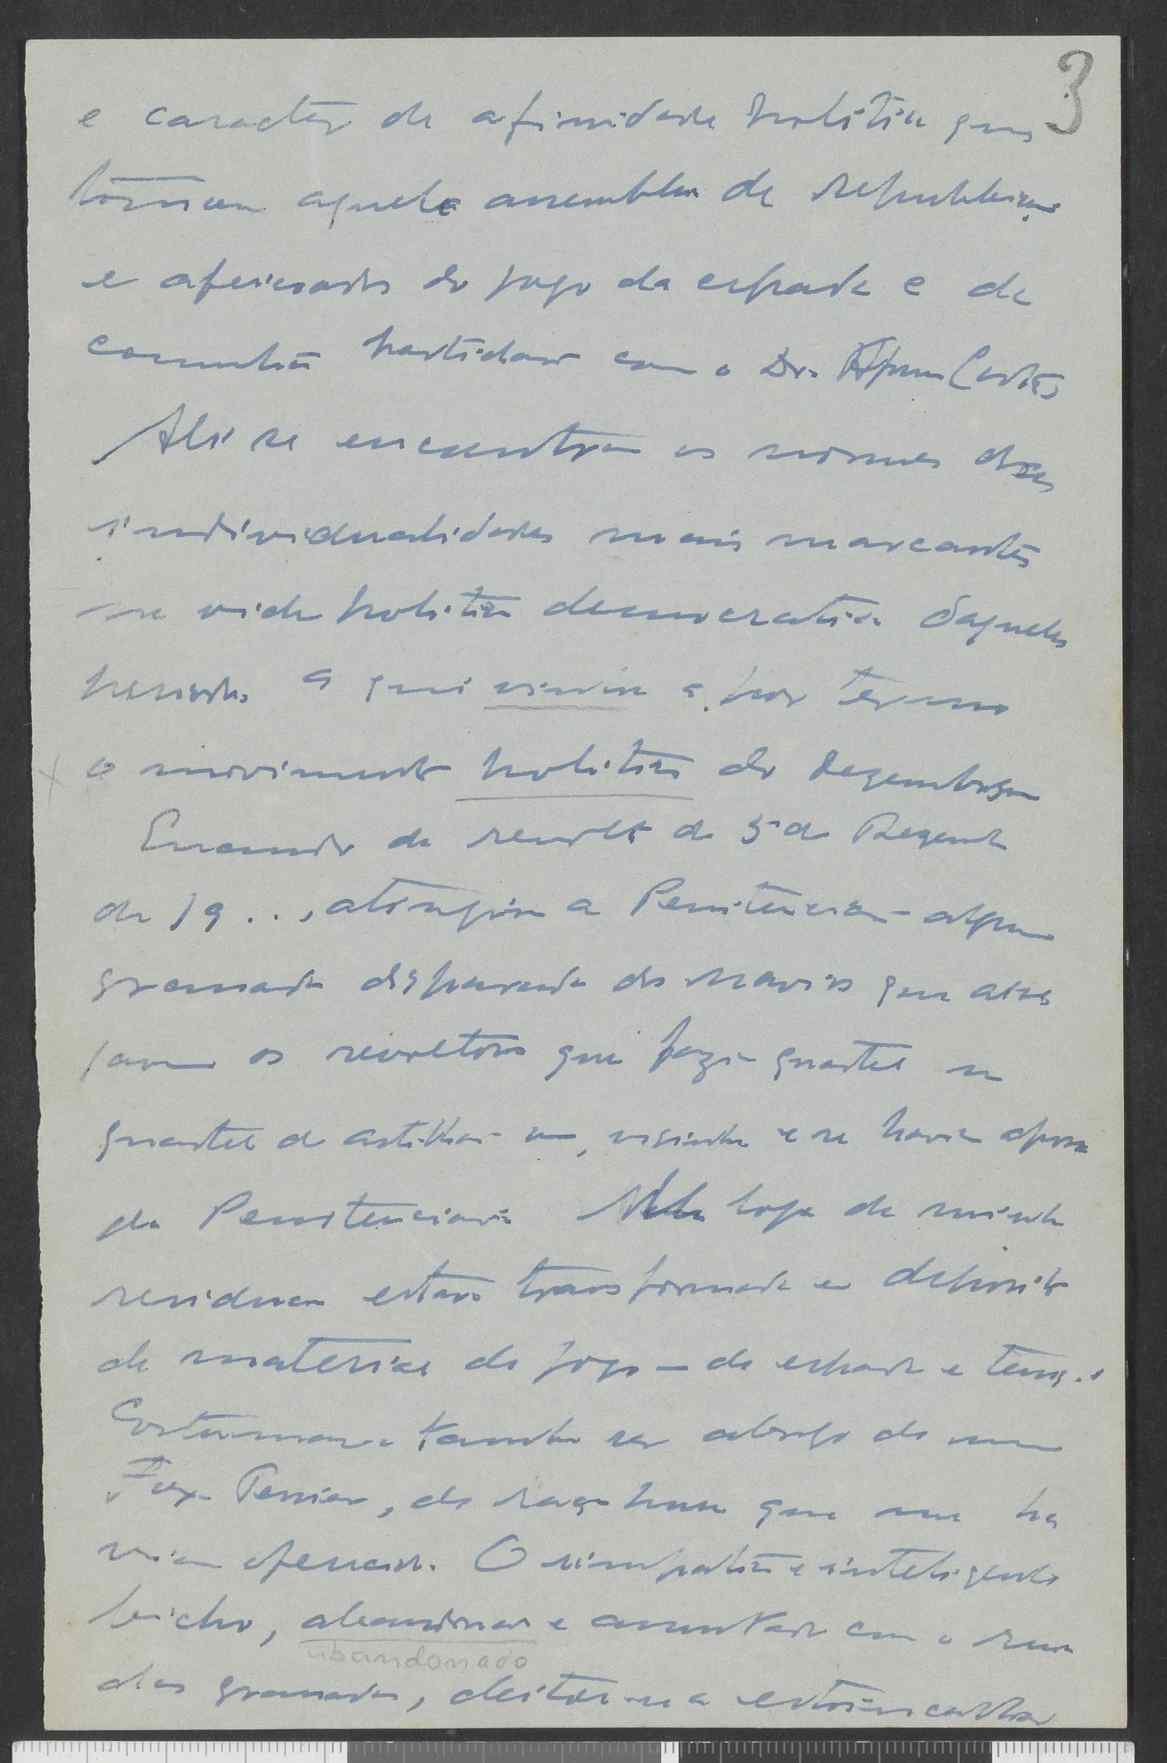 3
e caracter de afinidade politica que
tornou aquela assemblea de republicanos
e aficionados do jogo da espada e de
comunhão partidaria com o Dr. Afonso Costa
Ali se encontram os nomes das
individualidades mais marcantes
na vida politica democratica daquele
periodo a que viria a por termo
x o movimento politico do Dezembrismo
Quando da revolta de 5 de Dezembro
de 19.., atingiu a Penitenciaria alguma
granada disparada dos navios que
os revoltosos que fazia quartel no
quartel de artilharia um, visinho
da Penitenciaria loja de minha
residencia estava transformada em deposito
de material do jogo - de espada e tenis.
Costumava tambem ser abrigo de um
Fox-Terrier, de raça pura que me ha
viam oferecido. O simpatico e inteligente
bicho, abandonado e assustado com o
abandonado
das granadas, deitou-se a